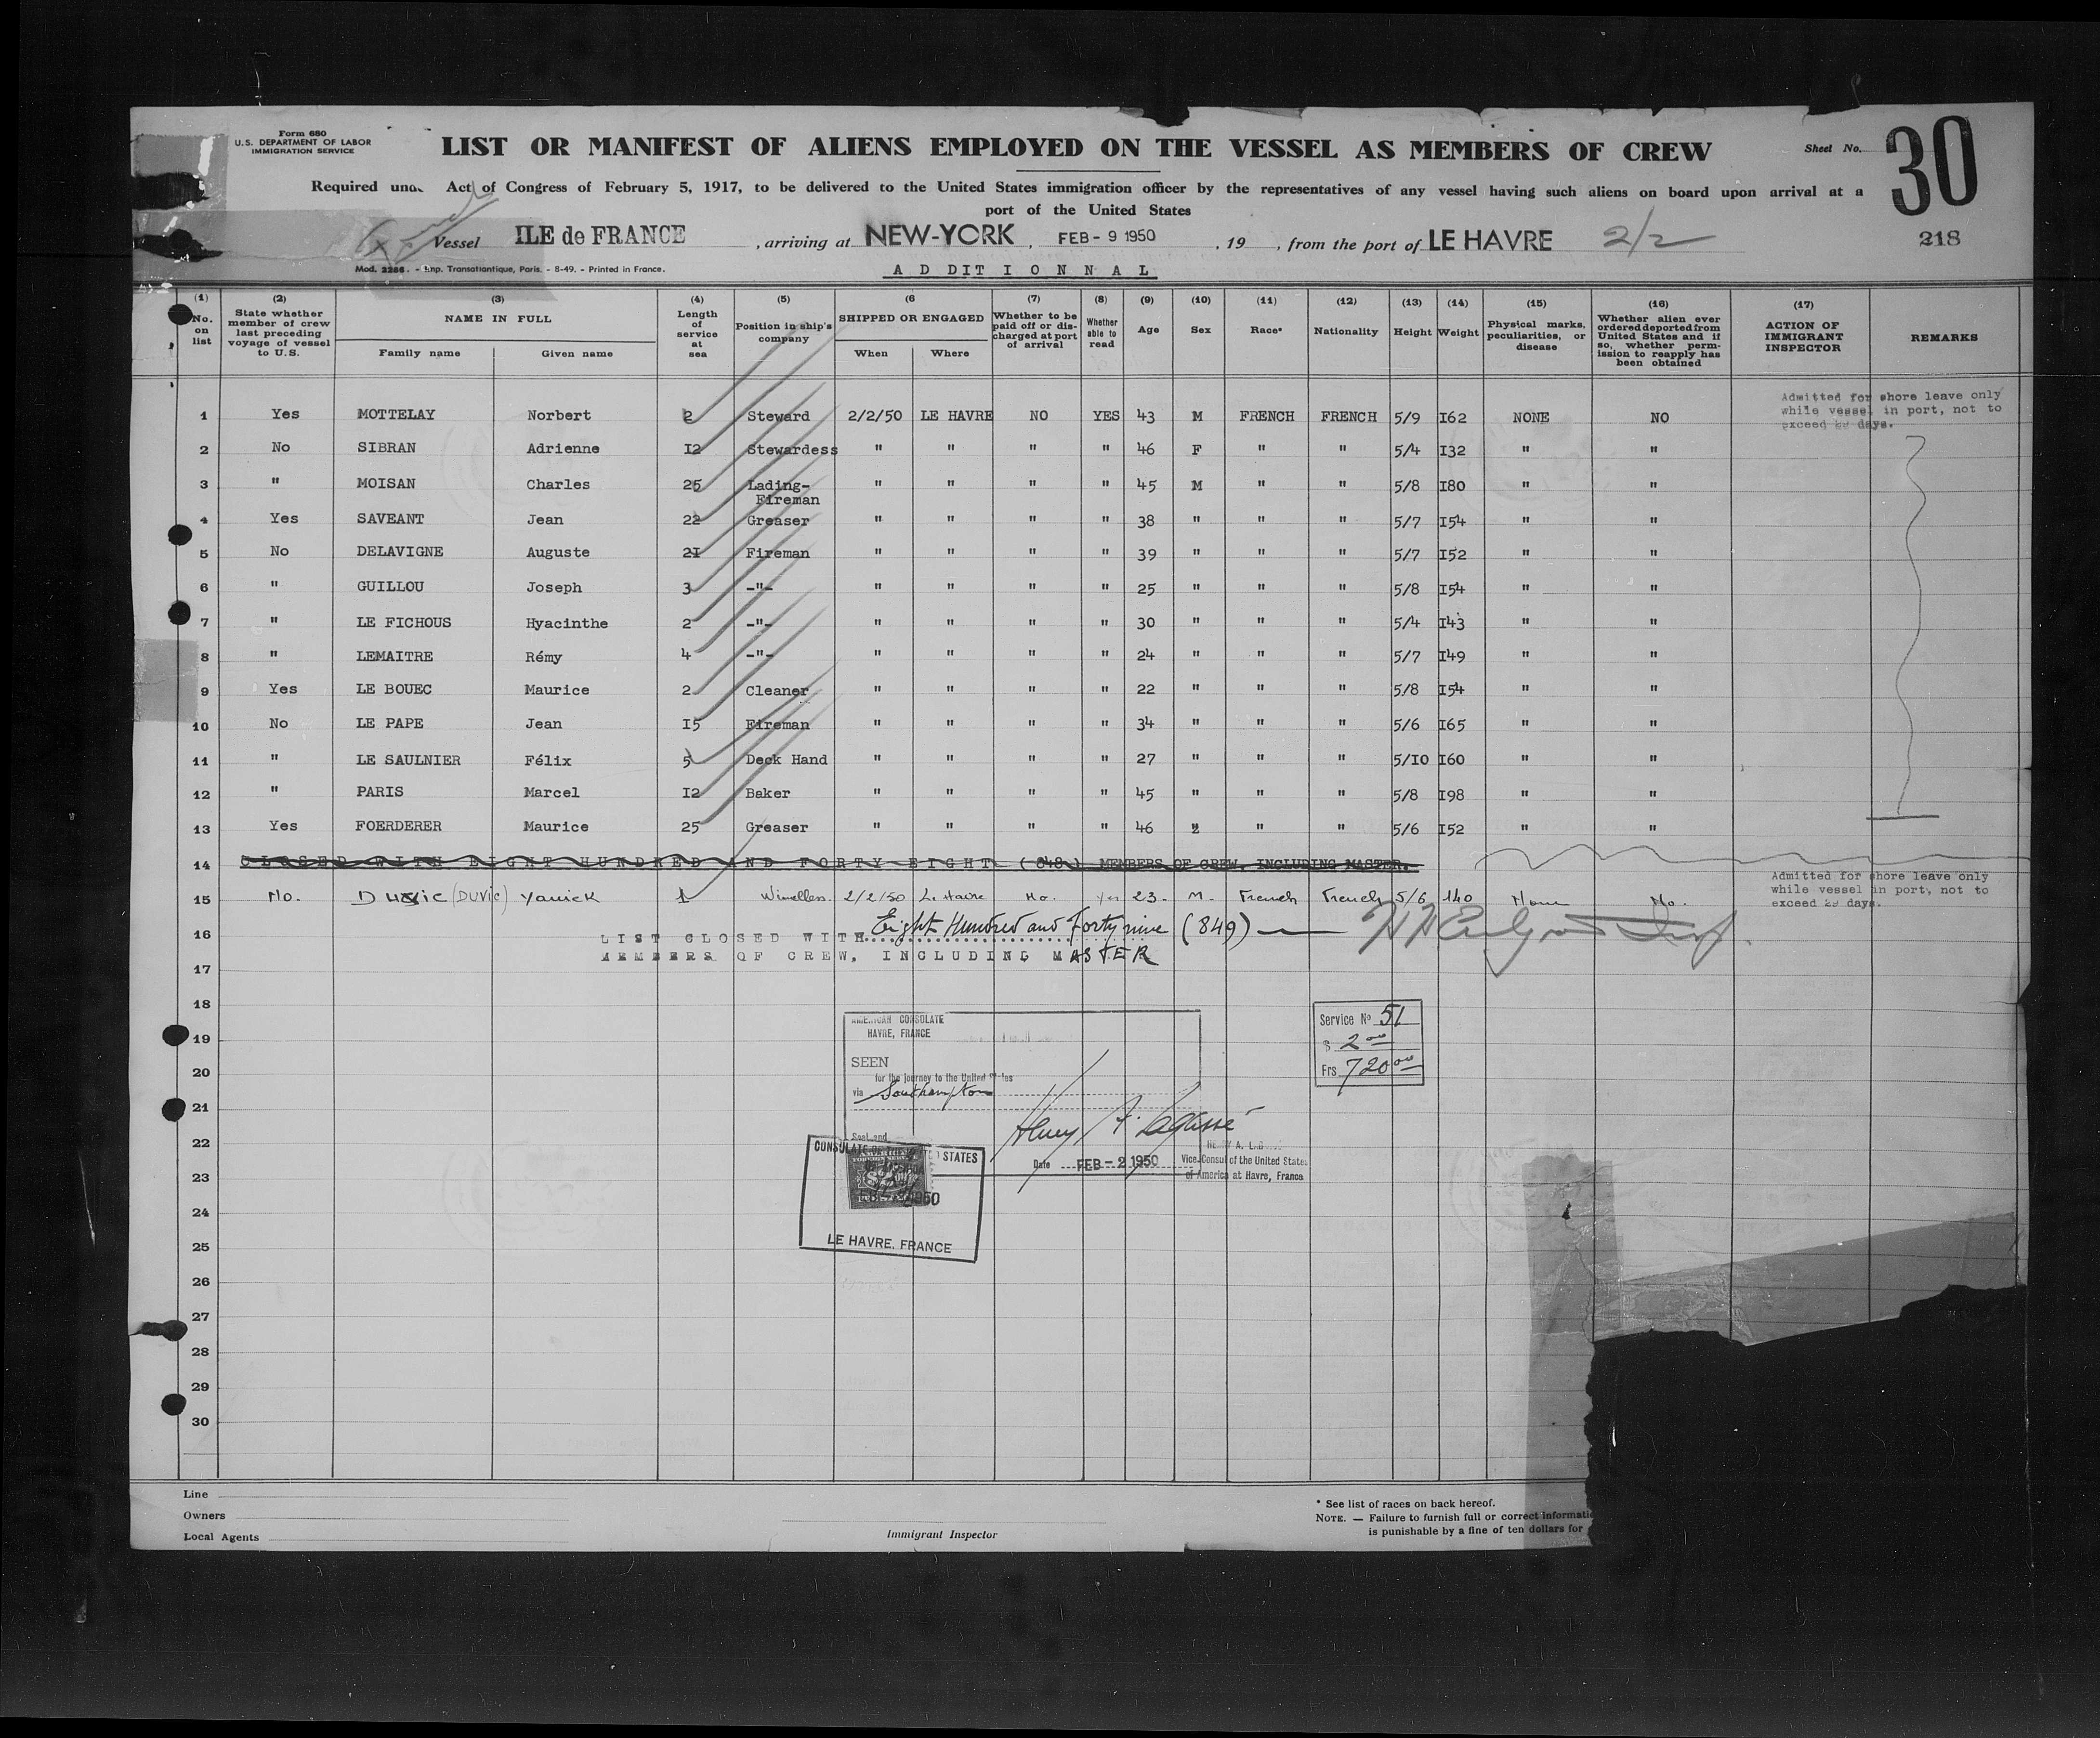 Form 680
U.S. DEPARTMENT OF LABOR
IMMIGRATION SERVICE
LIST OR MANIFEST OF ALIENS EMPLOYED ON THE VESSEL AS MEMBERS OF CREW
Sheet No. 30
Required und Act of Congress of February 5, 1917, to be delivered to the United States immigration officer by the representatives of any vessel having such aliens on board upon arrival at a
port of the United States
Vessel ILE de FRANCE, arriving at NEW-YORK, FEB - 9 1950, 19, from the port of LE HAVRE 2/2
218
Mod. 2286. - Imp. Transatlantique, Paris. - 8-49. - Printed in France.
ADDITIONNAL
(1) No. on list (2) State whether member of crew last preceding voyage of vessel to U.S. (3) NAME IN FULL Family name Given name (4) Length of service at sea (5) Position in ship's company (6 SHIPPED OR ENGAGED When Where (7) Whether to be paid off or discharged at port of arrival (8) Whether able to read (9) Age (10) Sex (11) Race* (12) Nationality (13) Height (14) Weight (15) Physical marks, peculiarities, or disease (16) Whether alien ever ordered deported from United States and if so, whether permission to reapply has been obtained (17) ACTION OF IMMIGRANT INSPECTOR REMARKS
Admitted for shore leave only
while vessel in port, not to
exceed 29 days.
1 Yes MOTTELAY Norbert 2 Steward 2/2/50 LE HAVRE NO YES 43 M FRENCH FRENCH 5/9 I62 NONE NO
2 No SIBRAN Adrienne I2 Stewardess " " " " 46 F " " 5/4 I32 " "
3 " MOISAN Charles 25 Lading-Fireman " " " " 45 M " " 5/8 I80 " "
4 Yes SAVEANT Jean 22 Greaser " " " " 38 " " " 5/7 I54 " "
5 No DELAVIGNE Auguste 2I Fireman " " " " 39 " " " 5/7 I52 " "
6 " GUILLOU Joseph 3 -"- " " " " 25 " " " 5/8 I54 " "
7 " LE FICHOUS Hyacinthe 2 -"- " " " " 30 " " " 5/4 I43 " "
8 " LEMAITRE Rémy 4 -"- " " " " 24 " " " 5/7 I49 " "
9 Yes LE BOUEC Maurice 2 Cleaner " " " " 22 " " " 5/8 I54 " "
10 No LE PAPE Jean I5 Fireman " " " " 34 " " " 5/6 I65 " "
11 " LE SAULNIER Félix 5 Deck Hand " " " " 27 " " " 5/I0 I60 " "
12 " PARIS Marcel I2 Baker " " " " 45 " " " 5/8 I98 " "
13 Yes FOERDERER Maurice 25 Greaser " " " " 46 " " " 5/6 I52 " "
14 CLOSED WITH EIGHT HUNDRED AND FORTY EIGHT (848) MEMBERS OF CREW, INCLUDING MASTER.
Admitted for shore leave only
while vessel in port, not to
exceed 29 days.
15 No. (DUVIC) Yanick 1 2/2/50 Le Havre No. Yes 23 M. French French 5/6 140 None No.
16 LIST CLOSED WITH Eight Hundred and Forty nine (849)
MEMBERS OF CREW, INCLUDING MASTER
17
18
19
20
21
22
23
24
25
26
27
28
29
30
AMERICAN CONSULATE
HAVRE, FRANCE
SEEN
for the journey to the United States
via Southampton
Seal and
Henry A. Lagassé
Date FEB - 2 1950
Vice-Consul of the United States
of America at Havre, France
Service No 51
$ 2 00
Frs 720 00
CONSULATE STATES
LE HAVRE, FRANCE
Line
Owners
Local Agents
Immigrant Inspector
* See list of races on back hereof.
NOTE. — Failure to furnish full or correct informati
is punishable by a fine of ten dollars for